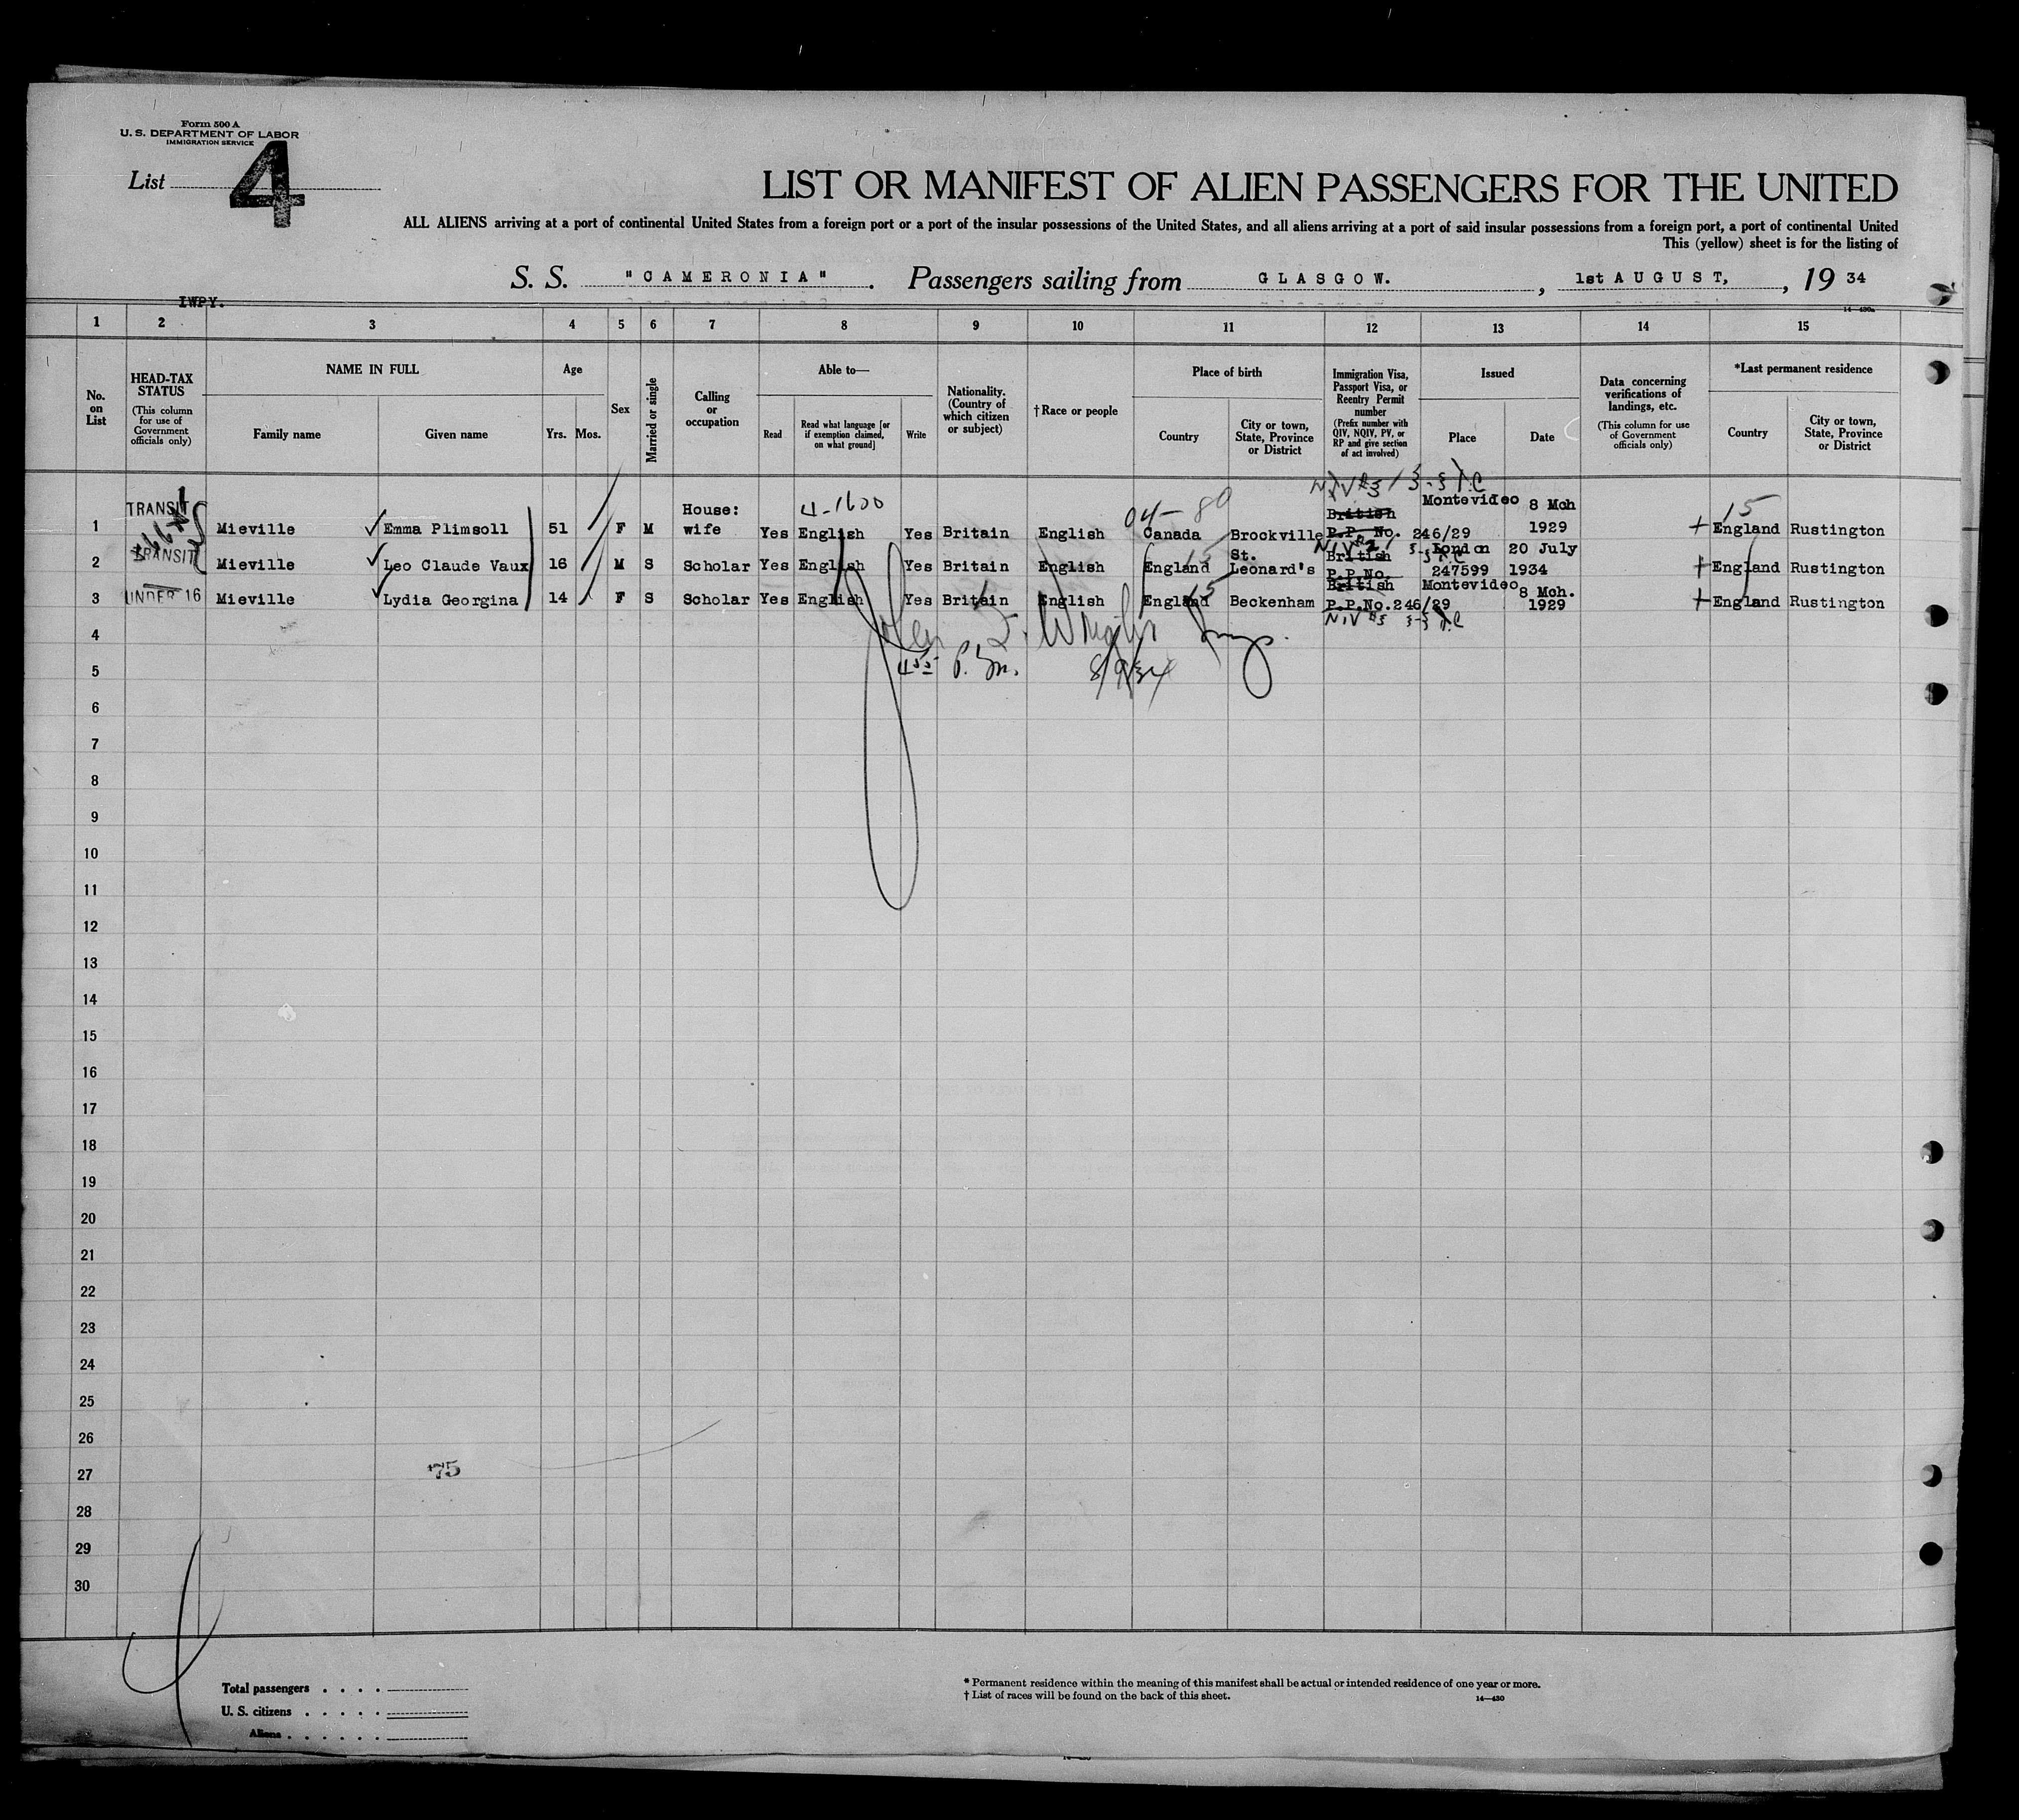 Form 500 A
U. S. DEPARTMENT OF LABOR
IMMIGRATION SERVICE
List 4
LIST OR MANIFEST OF ALIEN PASSENGERS FOR THE UNITED
ALL ALIENS arriving at a port of continental United States from a foreign port or a port of the insular possessions of the United States, and all aliens arriving at a port of said insular possessions from a foreign port, a port of continental United
This (yellow) sheet is for the listing of
S. S. "CAMERONIA". Passengers sailing from GLASGOW., 1st AUGUST, 19 34
IWPY.
14—430a
1 2 3 4 5 6 7 8 9 10 11 12 13 14 15
No. on List
HEAD-TAX STATUS
(This column for use of Government officials only)
NAME IN FULL
Family name
Given name
Age
Yrs. Mos.
Sex
Married or single
Calling or occupation
Able to—
Read
Read what language [or if exemption claimed, on what ground]
Write
Nationality. (Country of which citizen or subject)
† Race or people
Place of birth
Country
City or town, State, Province or District
Immigration Visa, Passport Visa, or Reentry Permit number
(Prefix number with QIV, NQIV, PV, or RP and give section of act involved)
Issued
Place
Date
Data concerning verifications of landings, etc.
(This column for use of Government officials only)
*Last permanent residence
Country
City or town, State, Province or District
4-1600
04- 80
15
1 TRANSIT Mieville Emma Plimsoll 51 F M House: wife Yes English Yes Britain English Canada Brockville British P.P. No. 246/29 Montevideo 8 Mch 1929 England Rustington
2 TRANSIT Mieville Leo Claude Vaux 16 M S Scholar Yes English Yes Britain English England St. Leonard's British P.P.No. 247599 London 20 July 1934 England Rustington
3 UNDER 16 Mieville Lydia Georgina 14 F S Scholar Yes English Yes Britain English England Beckenham British P.P.No.246/29 Montevideo 8 Mch. 1929 England Rustington
4
5 P.M. 8/9/34
6
7
8
9
10
11
12
13
14
15
16
17
18
19
20
21
22
23
24
25
26
27 75
28
29
30
Total passengers . . . .
U. S. citizens . . . . .
Aliens . . . . . .
* Permanent residence within the meaning of this manifest shall be actual or intended residence of one year or more.
† List of races will be found on the back of this sheet.
14—430